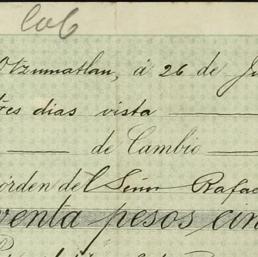 Otzumatlan, á 26 de Ju
tres dias vista
de Cambio
órden del Señor Rafa
venta pesos cin